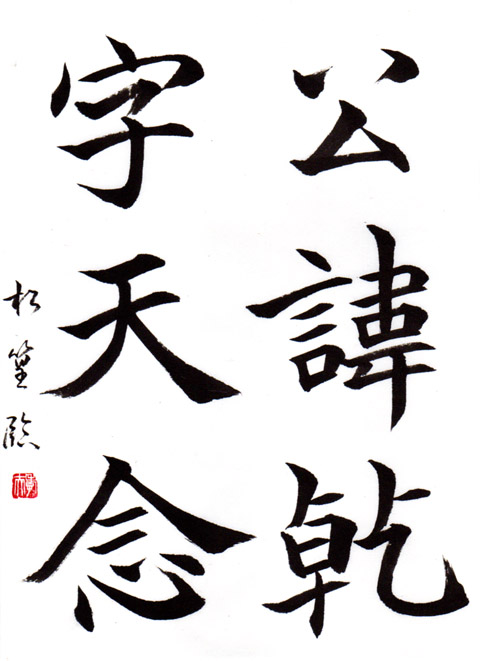 公諱乾
字天念
松篁臨